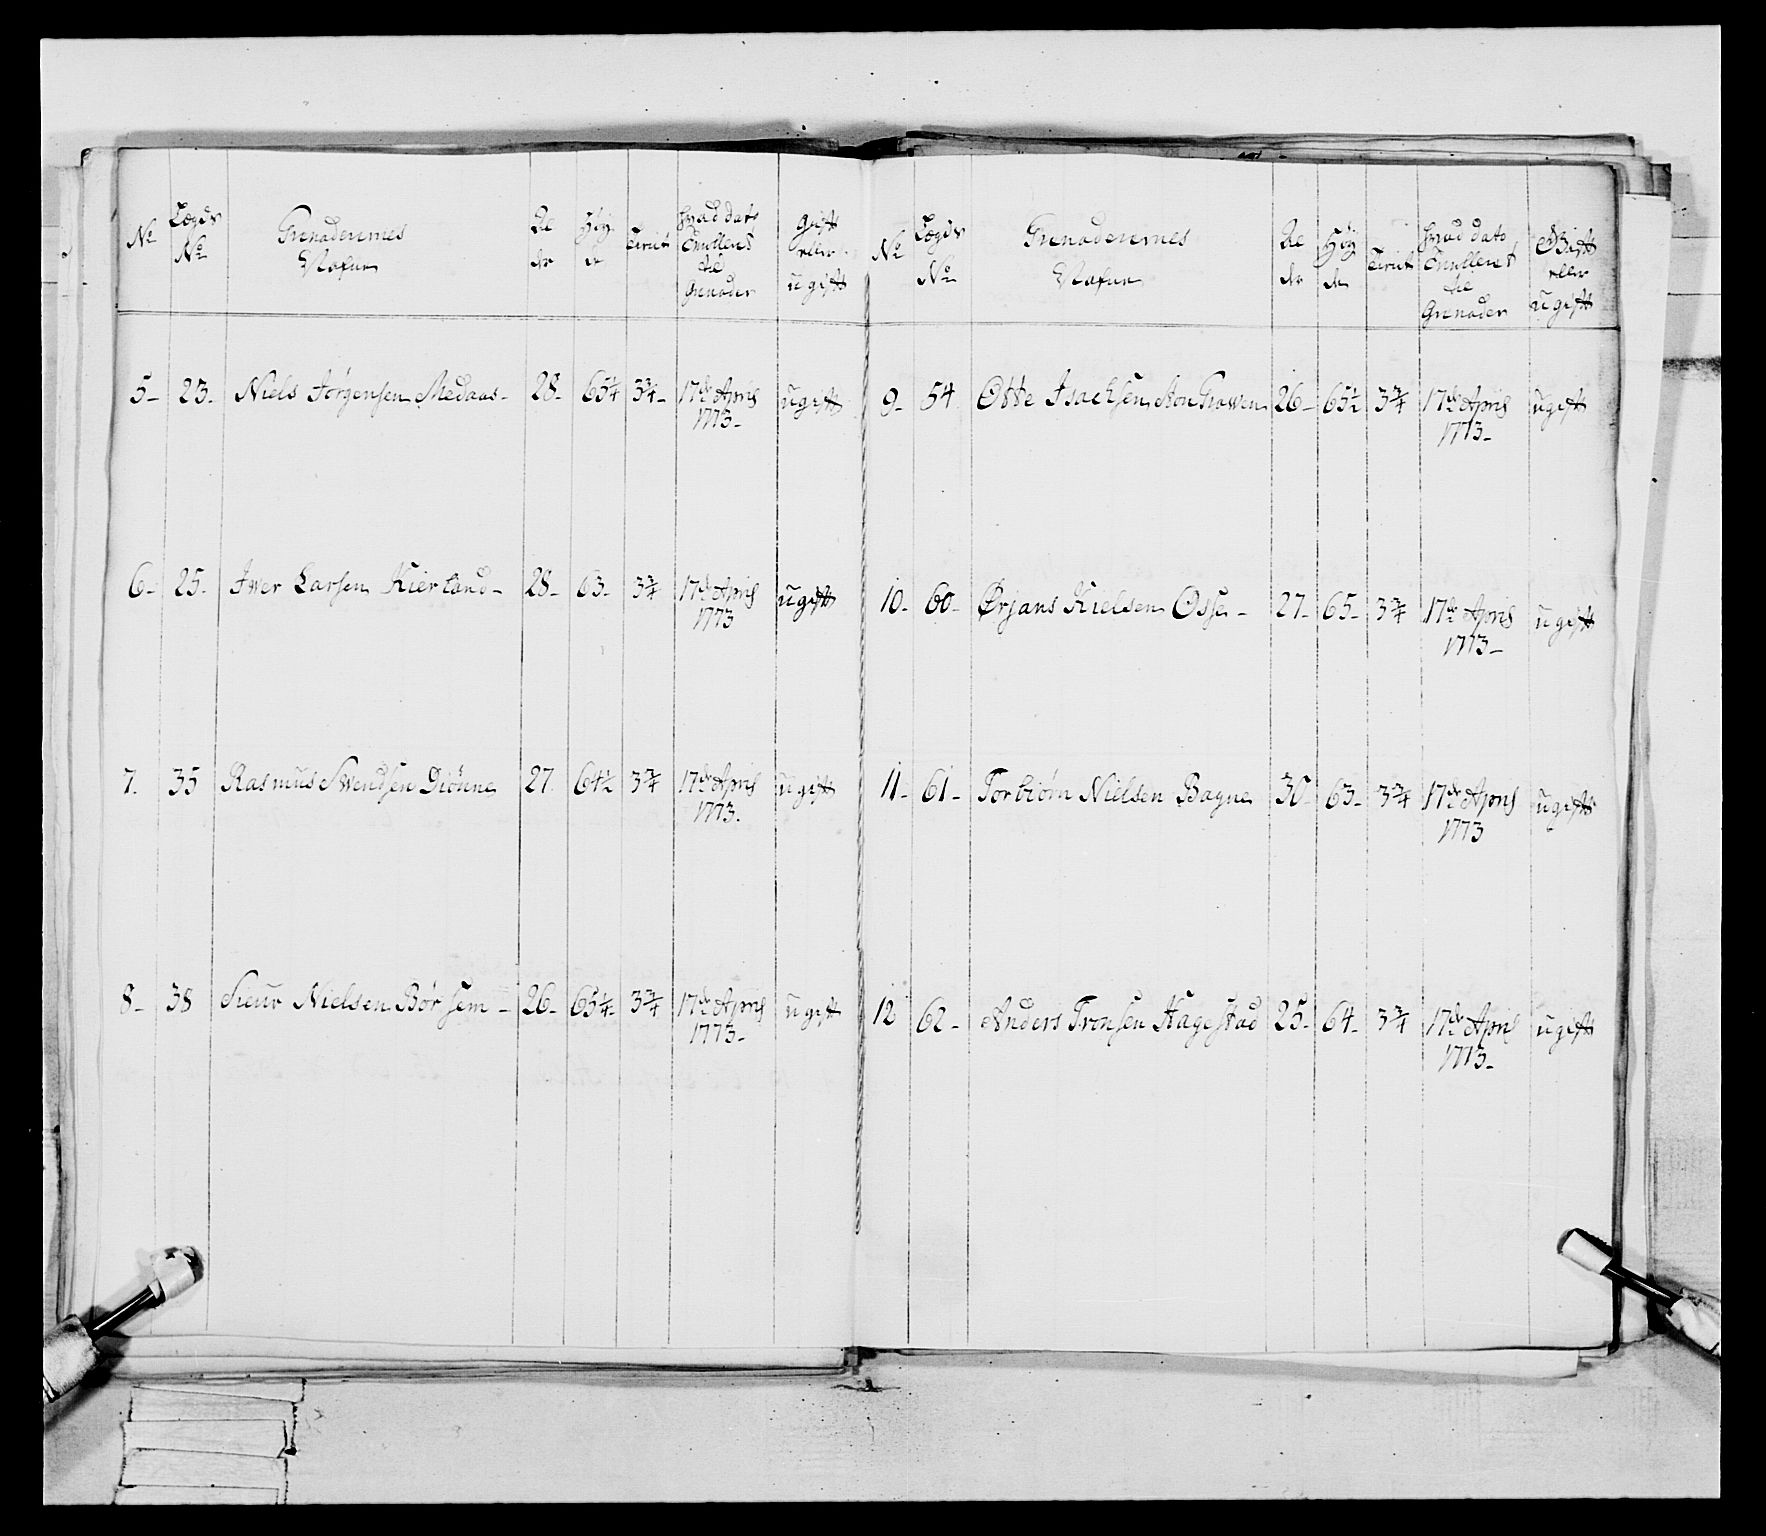 No Lægds No Grenadeernes Nafne Al der Höy de Tient hvad dato Enrulleret til Grenader gift eller ugift
5 - 23. Niels Jörgensen Medaas - 28 - 65¼ 3¾ - 17de April 1773 - ugift
6 - 25. Iver Larsen Kierland - 28 - 63 - 3¾ 17de April 1773 ugift
7. 35 Rasmus Svendsen Diönne 27. 64½ 3¾ 17de April 1773. ugift
8 - 38 Sieur Nielsen Börsem - 26 - 65¼ - 3¾ 17de April 1773 - ugift
No Lægds No Grenadeernes Nafne Al der Höy de Tient hvad dato Enrulleret til Grenader Gift eller ugift
9 - 54 Otte Isachsen 26 - 65½ 3¾ 17de April 1773 - ugift
10 - 60 - Ørjans Kielsen Osse - 27 - 65 - 3¾ 17de April 1773 - ugift
11 - 61 - Torbiörn Nielsen Bagne 30 - 63 - 3¾ 17de April 1773 ugift
12 62 - Anders Tronsen Hagestad 25 - 64 - 3¾ 17de April 1773 - ugift